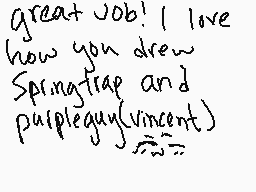 great job! I love
how you drew
Springtrap and
purpleguy(vincent)